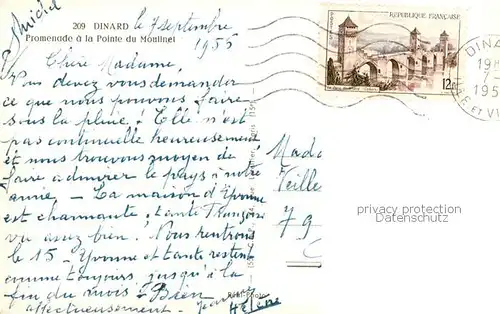 209 DINARD
Promenade à la Pointe du Moulinet
le 7 septembre
1955
Chère Madame,
Vous devez vous demander
ce que nous pouvons faire
sous la pluie ! Elle n'est
pas continuelle heureusement
et nous trouvons moyen de
faire admirer le pays à notre
amie. – La maison d'Yvonne
est charmante, tante Françoise
va assez bien. Nous rentrons
le 15 – Yvonne et tante restent
comme toujours jusqu'à la
fin du mois – Bien
affectueusement –
Hélène
Réel Photo
REPUBLIQUE FRANÇAISE
12f
DINA
19
195
E ET VI
Mada
Veille
79
privacy protection
Datenschutz